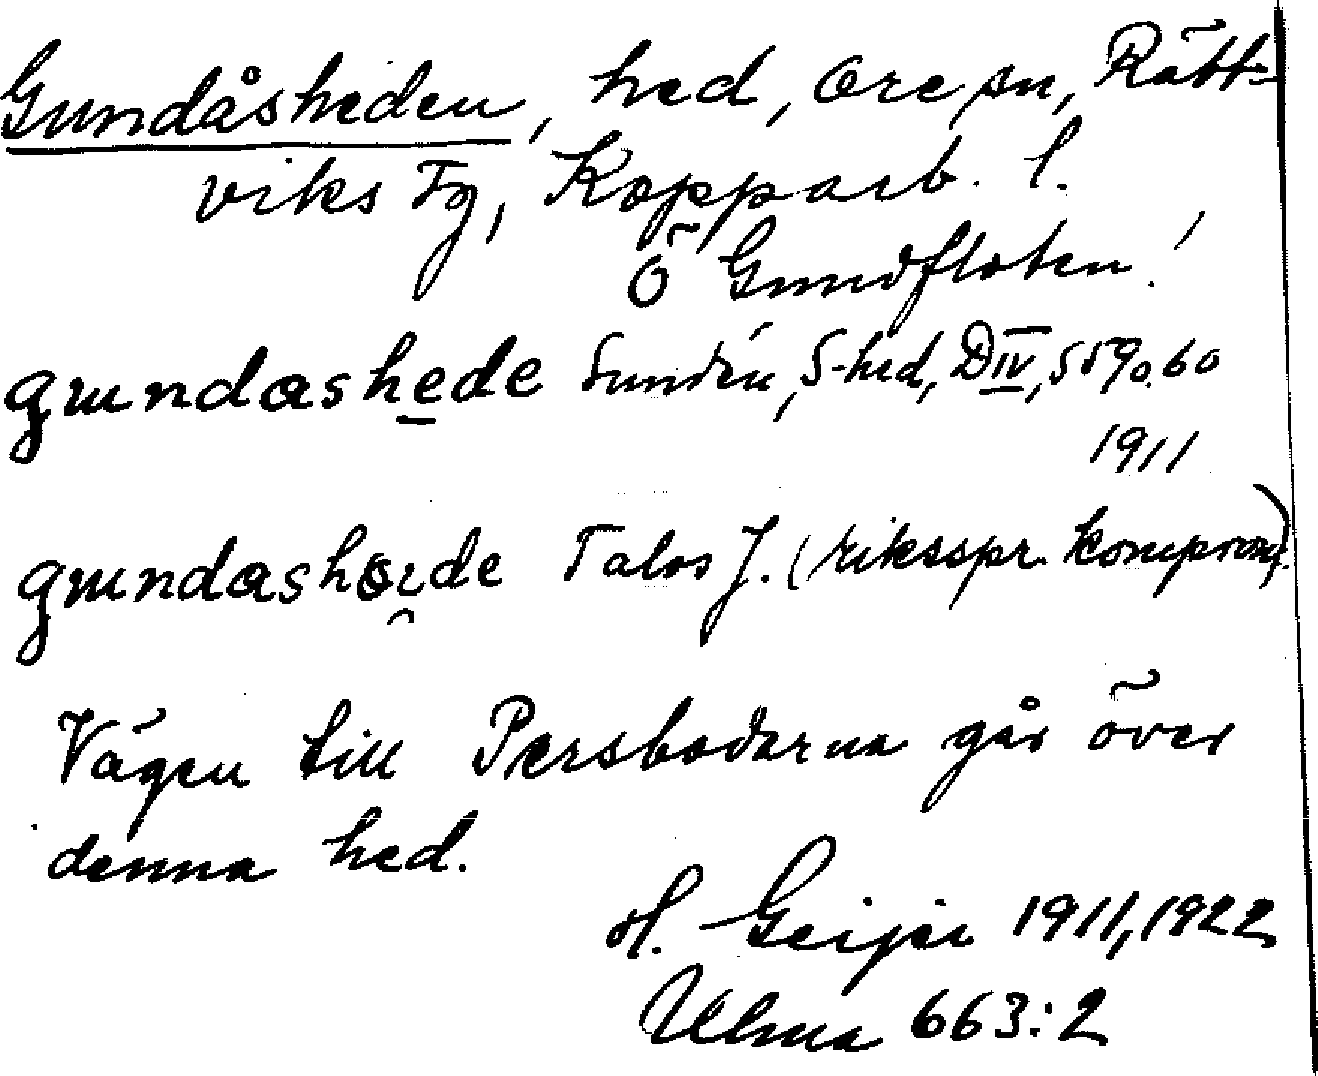 Gundåsheden, hed, Ore sn, Rätt-
viks Tg, Kopparb. l.
Ö Gundfloten!
gundashede Sundén, S-hed, DIV, 559 o. 60
1911
gundashede Talos J. (riksspr. kompron).
Vägen till Persbodarna går över
denna hed.
H. Geijer 1911, 1922
Ulma 663:2